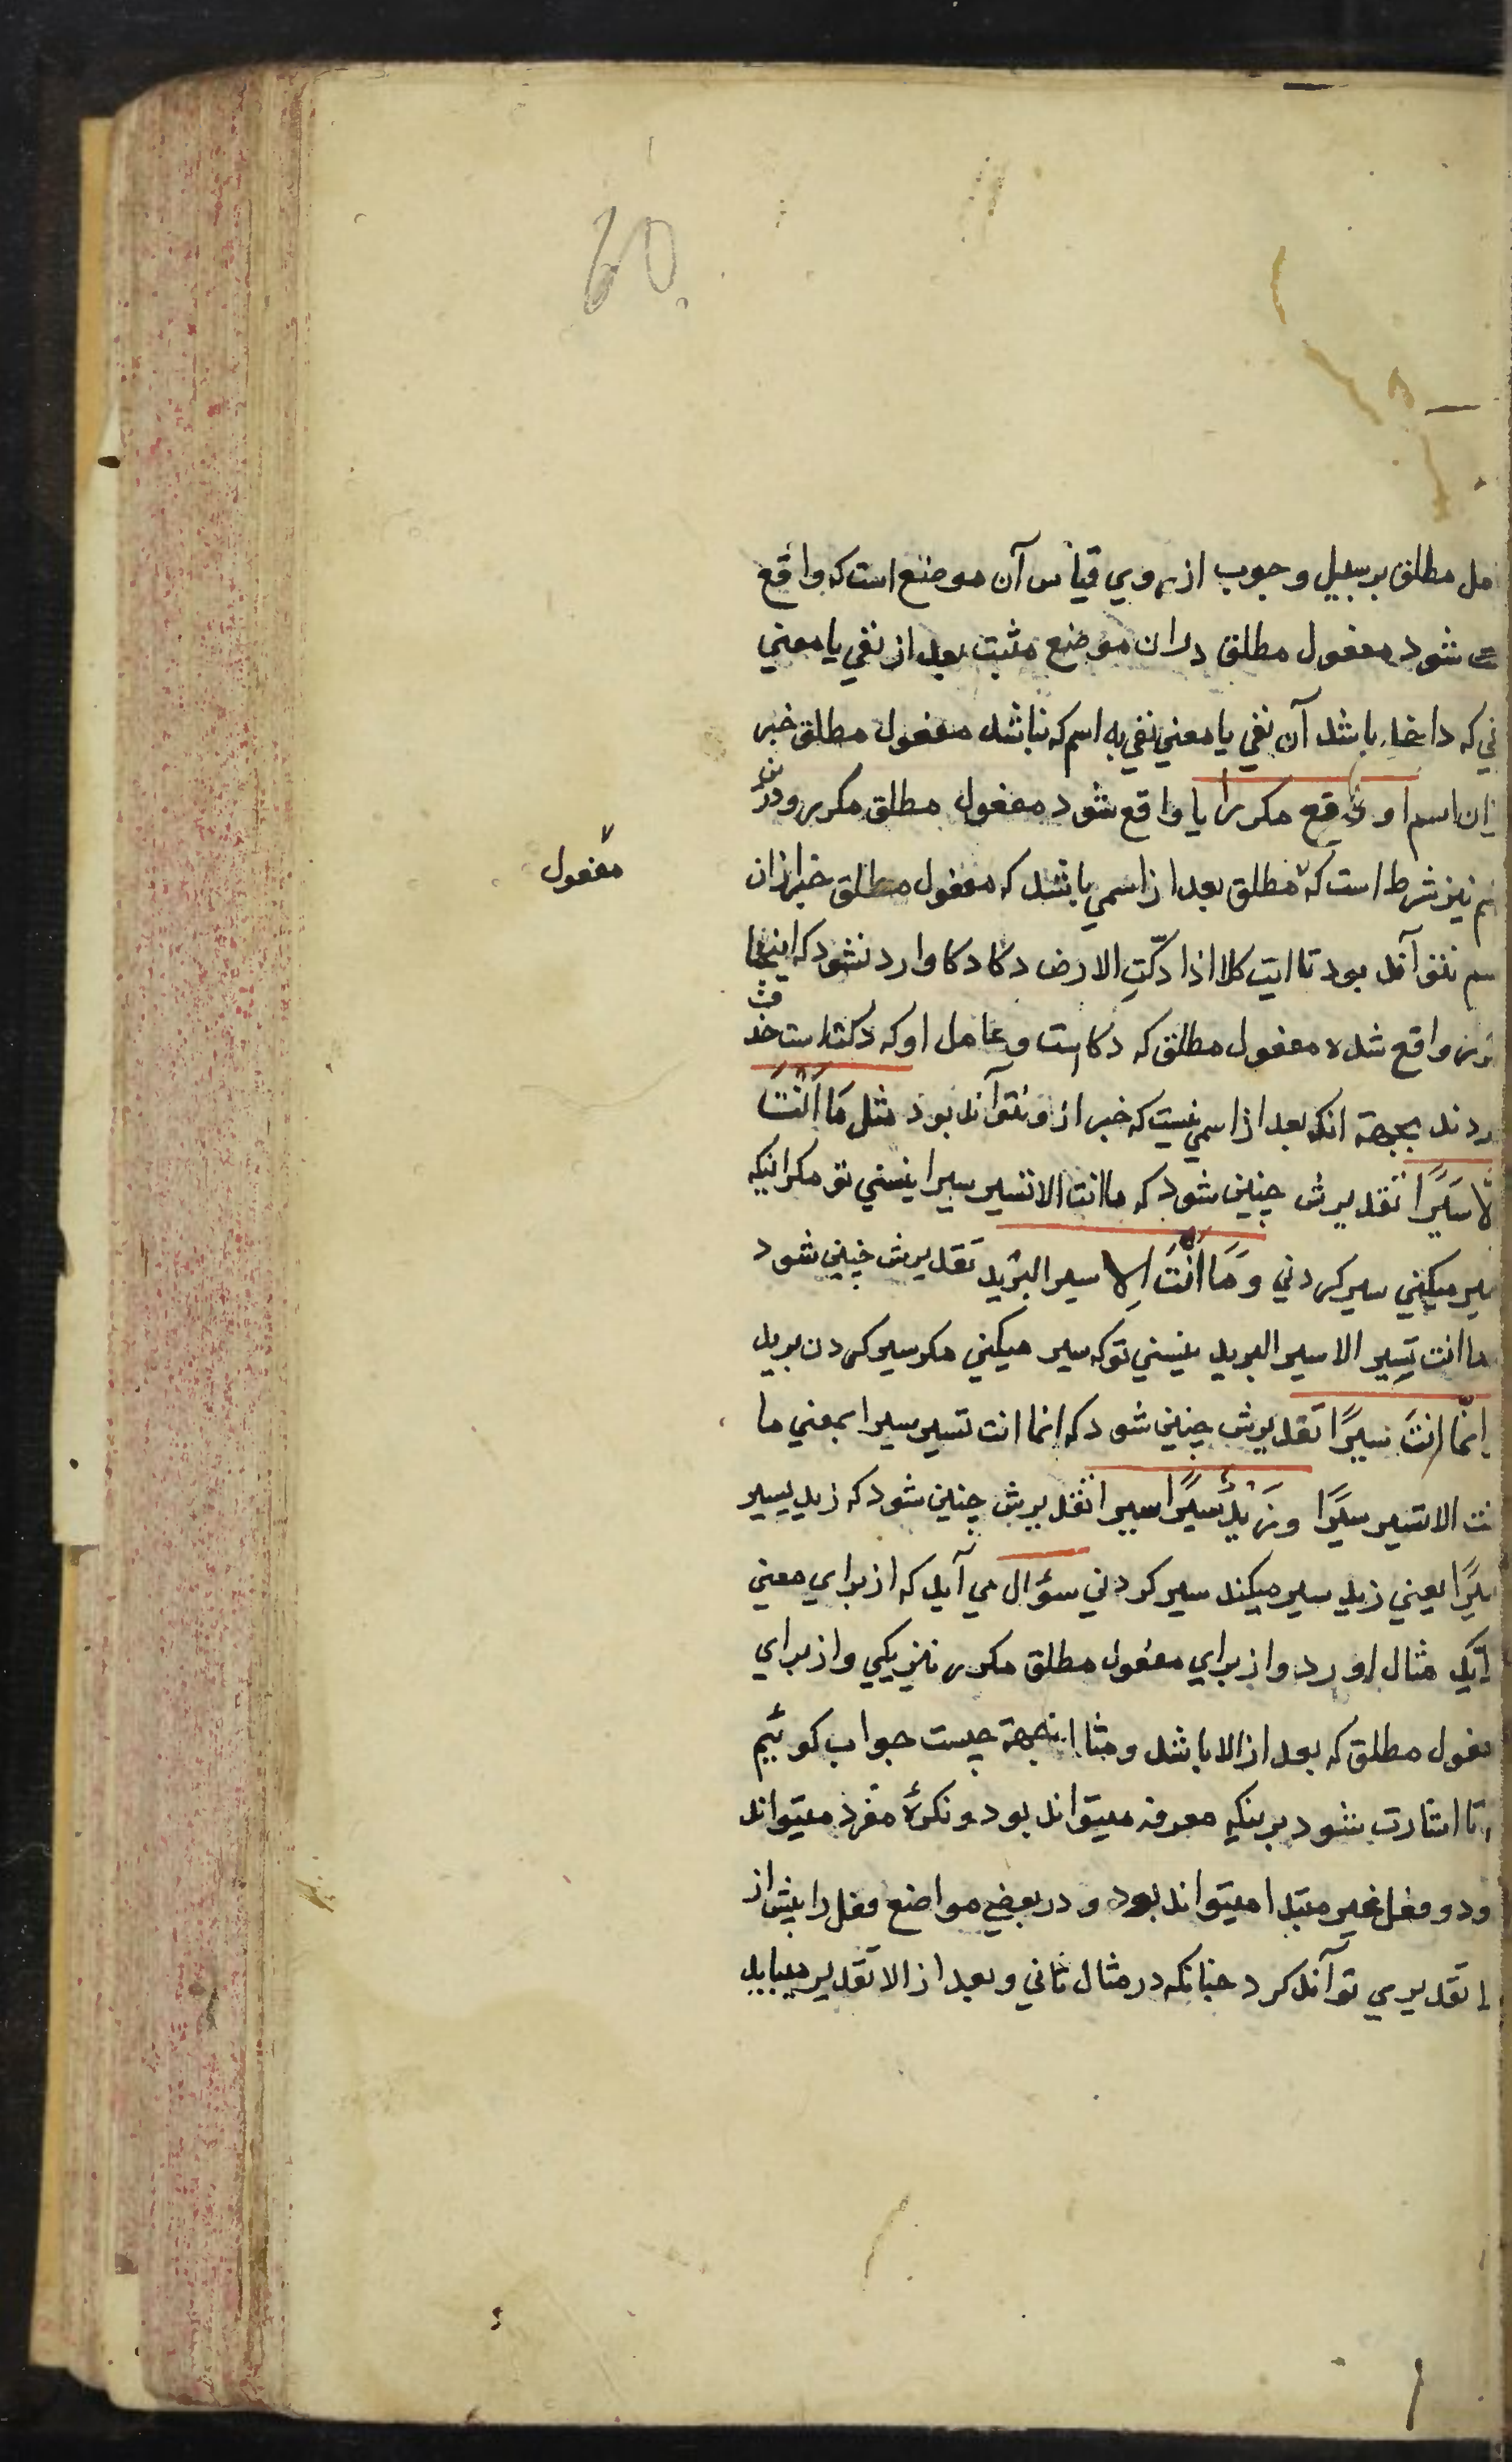 60
مل مطلق بر سبیل وجوب از روی قیاس آن موضع است که واقع
شود مفعول مطلق دران موضع مثبت بعد از نفی یا معنی
نی که داخل باشد آن نفی یا معنی نفی به اسم که نباشد مفعول مطلق خبر
زان اسم او وقع مکررا یا واقع شود مفعول مطلق مکرر ودرین
نیز شرط است که مطلق بعد از اسمی باشد که مفعول مطلق خبر ازان
مفعول
سم نتواند بود تا ایت کلا اذا دکّتِ الارض دکا دکا وارد نشود که اینجا
واقع شده مفعول مطلق که دکا است و عامل او که دکت است حذف
ردند بجهة انکه بعد از اسمی نیست که خبر از و نتواند بود مثل مَا اَنْتَ
لّا سَیْرًا تقدیرش چنین شود که ما انت الا تسیر سیرا نیستی تو مکر اینکه
سیر میکنی سیر کردنی وَمَا اَنْتَ اِلا سیر البرید تقدیرش چنین شود
ما انت تسیر الا سیر البرید نیستی تو که سیر میکنی مکر سیر کردن برید
انمّا انتَ سیرًا تقدیرش چنین شود که انما انت تسیر سیرا بمعنی ما
نت الا تسیر سیرًا وزَیْدٌ سیرًا سیرا تقدیرش چنین شود که زید یسیر
یرًا یعنی زید سیر میکند سیر کردنی سؤال می آید که از برای معنی
یک مثال اورد و از برای مفعول مطلق مکرر نیز یکی و از برای
فعول مطلق که بعد از الا باشد و مثا اینجهة چیست جواب کوئیم
تا اشارت شود برینکه معرفه میتواند بود و نکرهٔ مفرد میتواند
ود و فعل غیر مبتدا میتواند بود و در بعضی مواضع فعل را پیش از
ا تقدیری توآند کرد چنانکه در مثال ثانی و بعد از الا تقدیر میباید